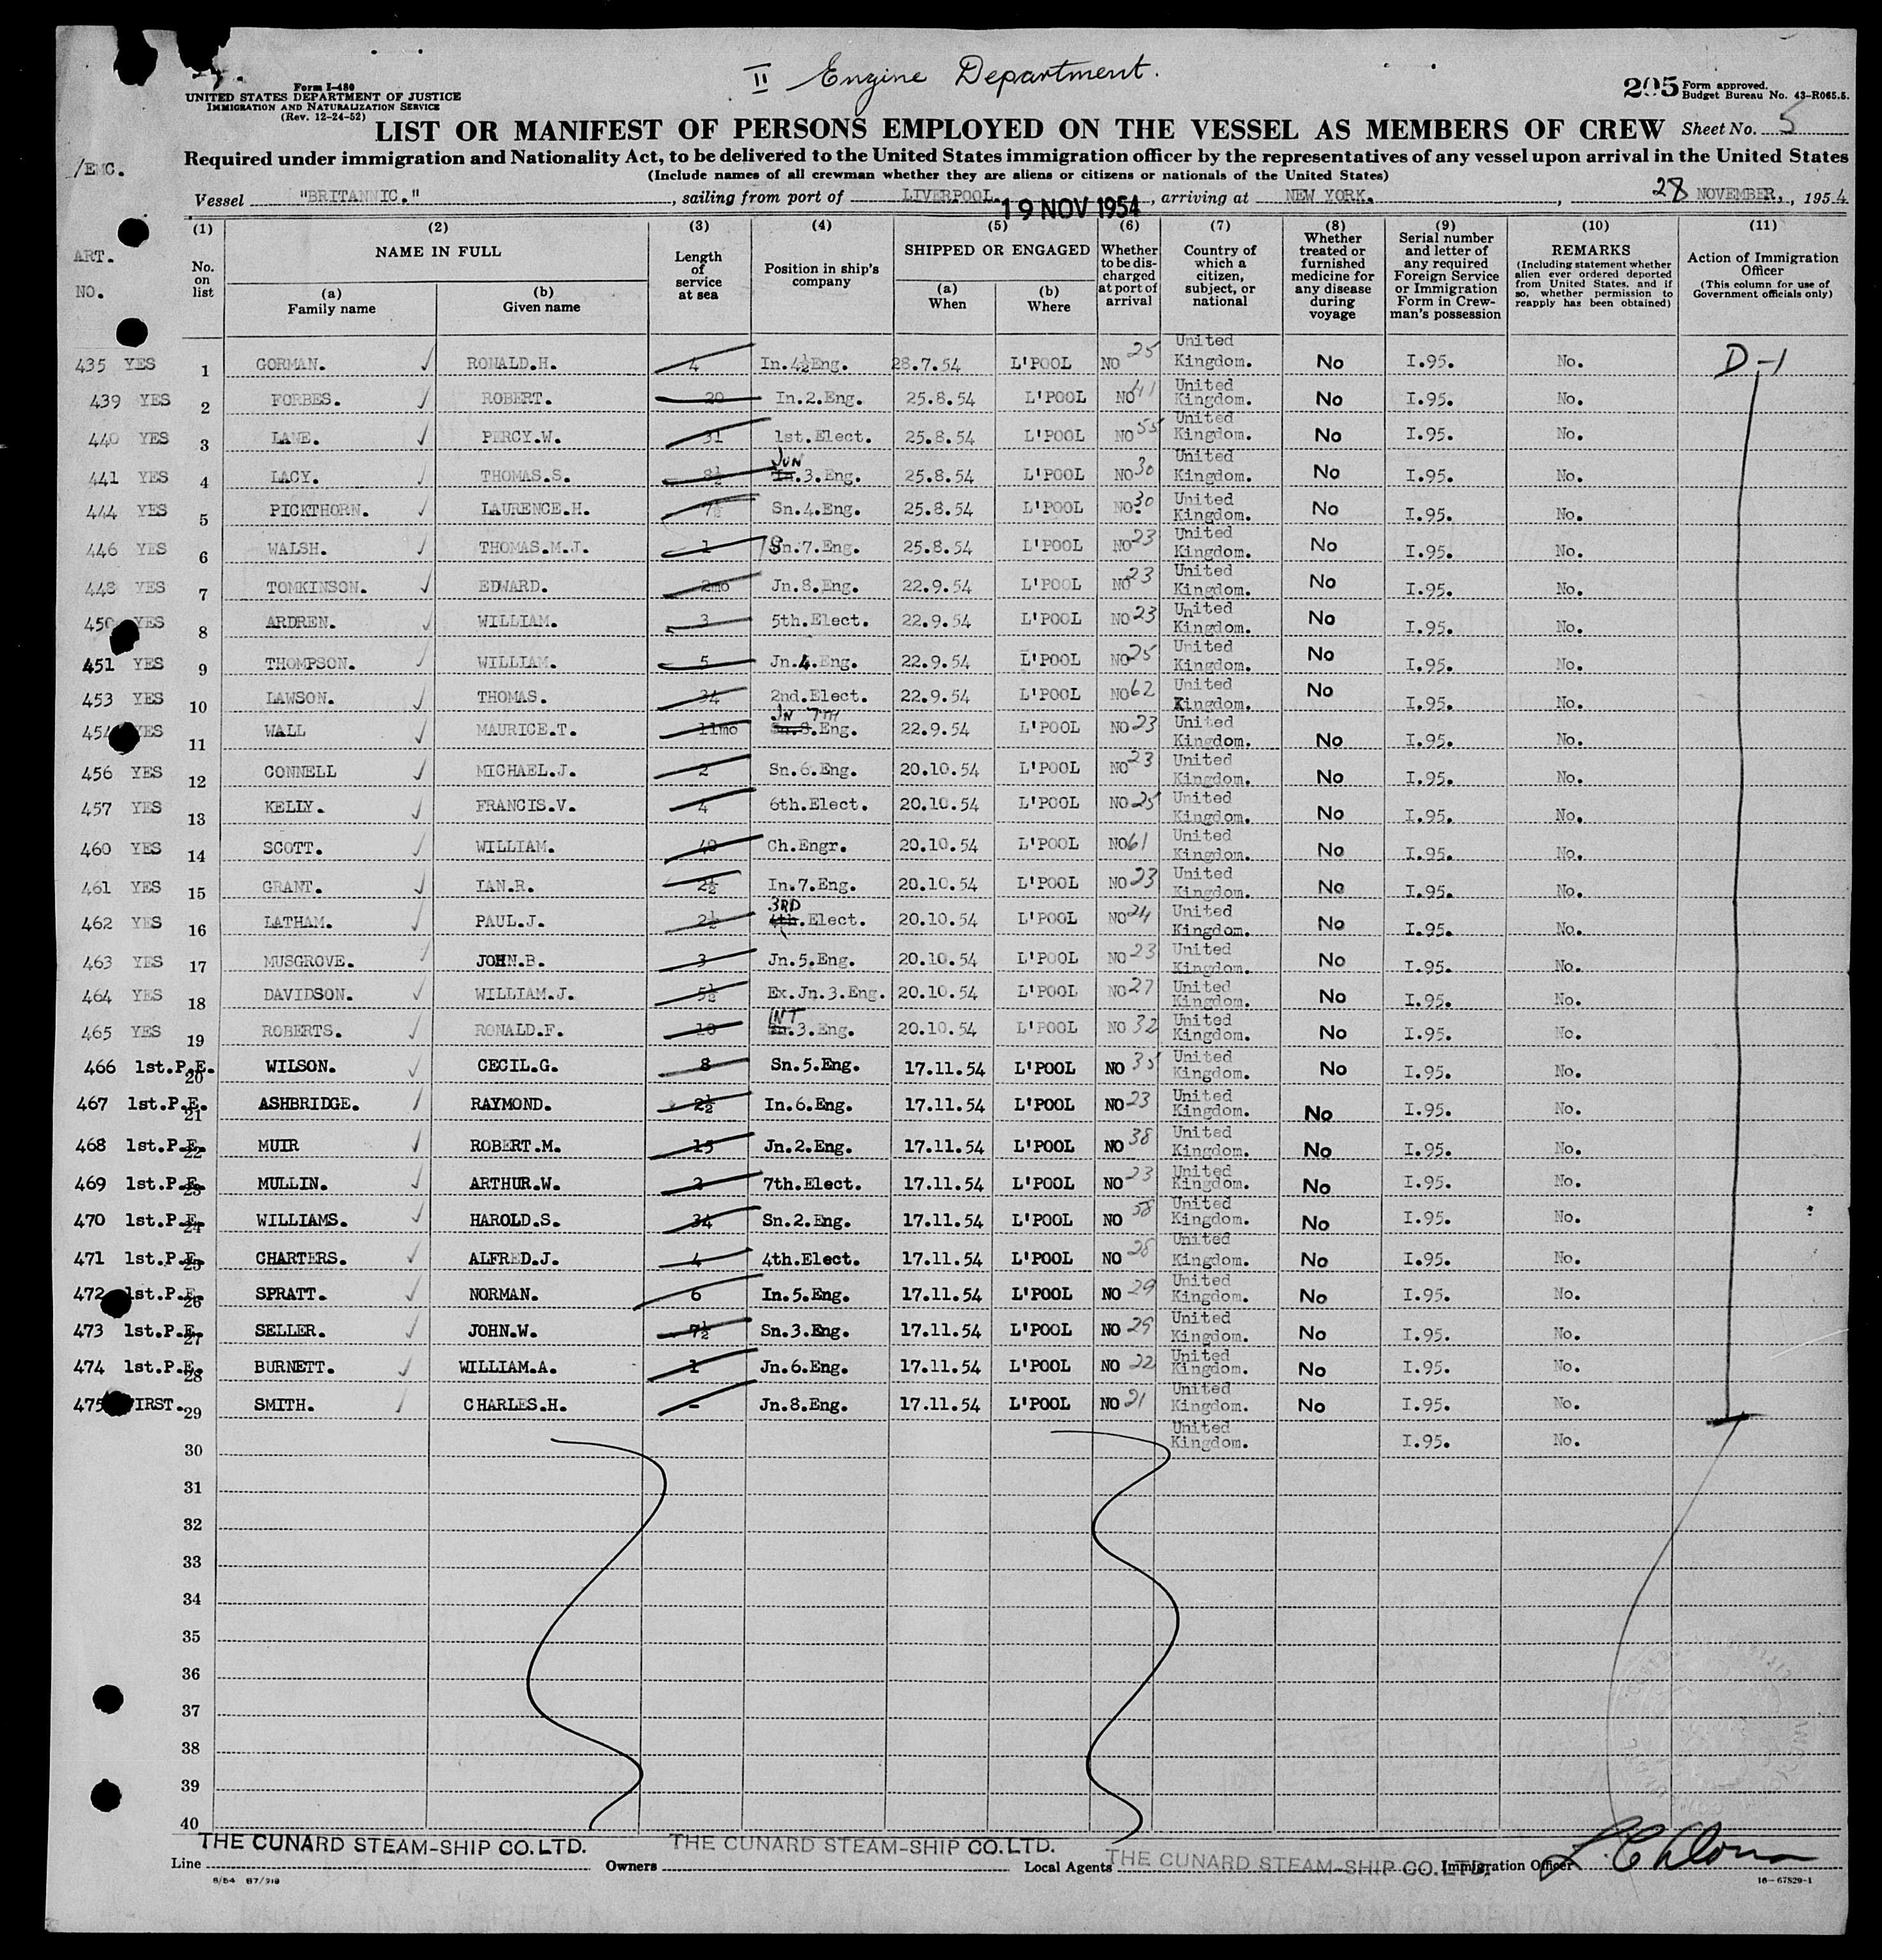 II Engine Department.
Form I-480
UNITED STATES DEPARTMENT OF JUSTICE
IMMIGRATION AND NATURALIZATION SERVICE
(Rev. 12-24-52)
205 Form approved.
Budget Bureau No. 43-R065.5.
LIST OR MANIFEST OF PERSONS EMPLOYED ON THE VESSEL AS MEMBERS OF CREW Sheet No. 5
Required under immigration and Nationality Act, to be delivered to the United States immigration officer by the representatives of any vessel upon arrival in the United States
(Include names of all crewman whether they are aliens or citizens or nationals of the United States)
Vessel "BRITANNIC." , sailing from port of LIVERPOOL. 19 NOV 1954 , arriving at NEW YORK. , 28 NOVEMBER, , 1954
/EMC. ART. NO.
(1) No. on list
(2) NAME IN FULL (a) Family name (b) Given name
(3) Length of service at sea
(4) Position in ship's company
(5) SHIPPED OR ENGAGED (a) When (b) Where
(6) Whether to be discharged at port of arrival
(7) Country of which a citizen, subject, or national
(8) Whether treated or furnished medicine for any disease during voyage
(9) Serial number and letter of any required Foreign Service or Immigration Form in Crewman's possession
(10) REMARKS (Including statement whether alien ever ordered deported from United States, and if so, whether permission to reapply has been obtained)
(11) Action of Immigration Officer (This column for use of Government officials only)
435 YES 1 GORMAN. RONALD.H. 4 In.4½Eng. 28.7.54 L'POOL NO 25 United Kingdom. No I.95. No. D-1
439 YES 2 FORBES. ROBERT. 20 In.2.Eng. 25.8.54 L'POOL NO 41 United Kingdom. No I.95. No.
440 YES 3 LANE. PERCY.W. 31 1st.Elect. 25.8.54 L'POOL NO 55 United Kingdom. No I.95. No.
441 YES 4 LACY. THOMAS.S. 8½ JUN In.3.Eng. 25.8.54 L'POOL NO 30 United Kingdom. No I.95. No.
444 YES 5 PICKTHORN. LAURENCE.H. 7½ Sn.4.Eng. 25.8.54 L'POOL NO. 30 United Kingdom. No I.95. No.
446 YES 6 WALSH. THOMAS.M.J. 1 Sn.7.Eng. 25.8.54 L'POOL NO 23 United Kingdom. No I.95. No.
448 YES 7 TOMKINSON. EDWARD. 2mo Jn.8.Eng. 22.9.54 L'POOL NO 23 United Kingdom. No I.95. No.
450 YES 8 ARDREN. WILLIAM. 3 5th.Elect. 22.9.54 L'POOL NO 23 United Kingdom. No I.95. No.
451 YES 9 THOMPSON. WILLIAM. 5 Jn.4.Eng. 22.9.54 L'POOL NO 25 United Kingdom. No I.95. No.
453 YES 10 LAWSON. THOMAS. 34 2nd.Elect. 22.9.54 L'POOL NO 62 United Kingdom. No I.95. No.
454 YES 11 WALL MAURICE.T. 11mo JN 7TH Sn.8.Eng. 22.9.54 L'POOL NO 23 United Kingdom. No I.95. No.
456 YES 12 CONNELL MICHAEL.J. 2 Sn.6.Eng. 20.10.54 L'POOL NO 23 United Kingdom. No I.95. No.
457 YES 13 KELLY. FRANCIS.V. 4 6th.Elect. 20.10.54 L'POOL NO 25 United Kingdom. No I.95. No.
460 YES 14 SCOTT. WILLIAM. 40 Ch.Engr. 20.10.54 L'POOL NO 61 United Kingdom. No I.95. No.
461 YES 15 GRANT. IAN.R. 2½ In.7.Eng. 20.10.54 L'POOL NO 23 United Kingdom. No I.95. No.
462 YES 16 LATHAM. PAUL.J. 2½ 3RD 4th.Elect. 20.10.54 L'POOL NO 24 United Kingdom. No I.95. No.
463 YES 17 MUSGROVE. JOHN.B. 3 Jn.5.Eng. 20.10.54 L'POOL NO 23 United Kingdom. No I.95. No.
464 YES 18 DAVIDSON. WILLIAM.J. 5½ Ex.Jn.3.Eng. 20.10.54 L'POOL NO 27 United Kingdom. No I.95. No.
465 YES 19 ROBERTS. RONALD.F. 10 INT .3.Eng. 20.10.54 L'POOL NO 32 United Kingdom. No I.95. No.
466 1st.P.E. 20 WILSON. CECIL.G. 8 Sn.5.Eng. 17.11.54 L'POOL NO 35 United Kingdom. No I.95. No.
467 1st.P.E. 21 ASHBRIDGE. RAYMOND. 2½ In.6.Eng. 17.11.54 L'POOL NO 23 United Kingdom. No I.95. No.
468 1st.P.E. 22 MUIR ROBERT.M. 15 Jn.2.Eng. 17.11.54 L'POOL NO 38 United Kingdom. No I.95. No.
469 1st.P.E. 23 MULLIN. ARTHUR.W. 2 7th.Elect. 17.11.54 L'POOL NO 23 United Kingdom. No I.95. No.
470 1st.P.E. 24 WILLIAMS. HAROLD.S. 34 Sn.2.Eng. 17.11.54 L'POOL NO 58 United Kingdom. No I.95. No.
471 1st.P.E. 25 CHARTERS. ALFRED.J. 4 4th.Elect. 17.11.54 L'POOL NO 28 United Kingdom. No I.95. No.
472 1st.P.E. 26 SPRATT. NORMAN. 6 In.5.Eng. 17.11.54 L'POOL NO 29 United Kingdom. No I.95. No.
473 1st.P.E. 27 SELLER. JOHN.W. 7½ Sn.3.Eng. 17.11.54 L'POOL NO 29 United Kingdom. No I.95. No.
474 1st.P.E. 28 BURNETT. WILLIAM.A. 1 Jn.6.Eng. 17.11.54 L'POOL NO 22 United Kingdom. No I.95. No.
475 FIRST. 29 SMITH. CHARLES.H. - Jn.8.Eng. 17.11.54 L'POOL NO 21 United Kingdom. No I.95. No.
30 United Kingdom. I.95. No.
31
32
33
34
35
36
37
38
39
40
Line THE CUNARD STEAM-SHIP CO. LTD. Owners THE CUNARD STEAM-SHIP CO. LTD. Local Agents THE CUNARD STEAM-SHIP CO. LTD. Immigration Officer
16-67829-1